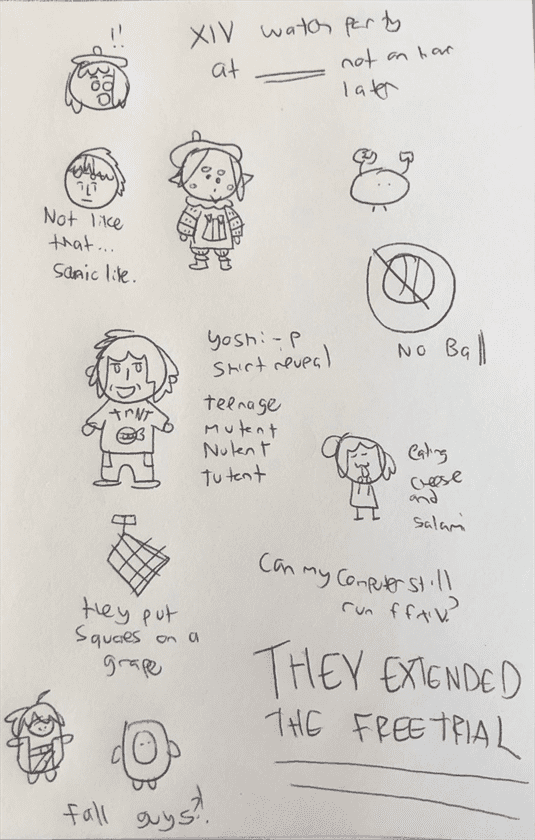 !!
XIV watch party
at ____ not an hour
later
Not like
that...
sanic like.
NO Ball
Yoshi-P
shirt reveal
TMNT
teenage
mutent
Nutent
tutent
eating
cheese
and
salami
Can my computer still
run ffxiv?
they put
squares on a
grape
THEY EXTENDED
THE FREE TRIAL
fall guys?!